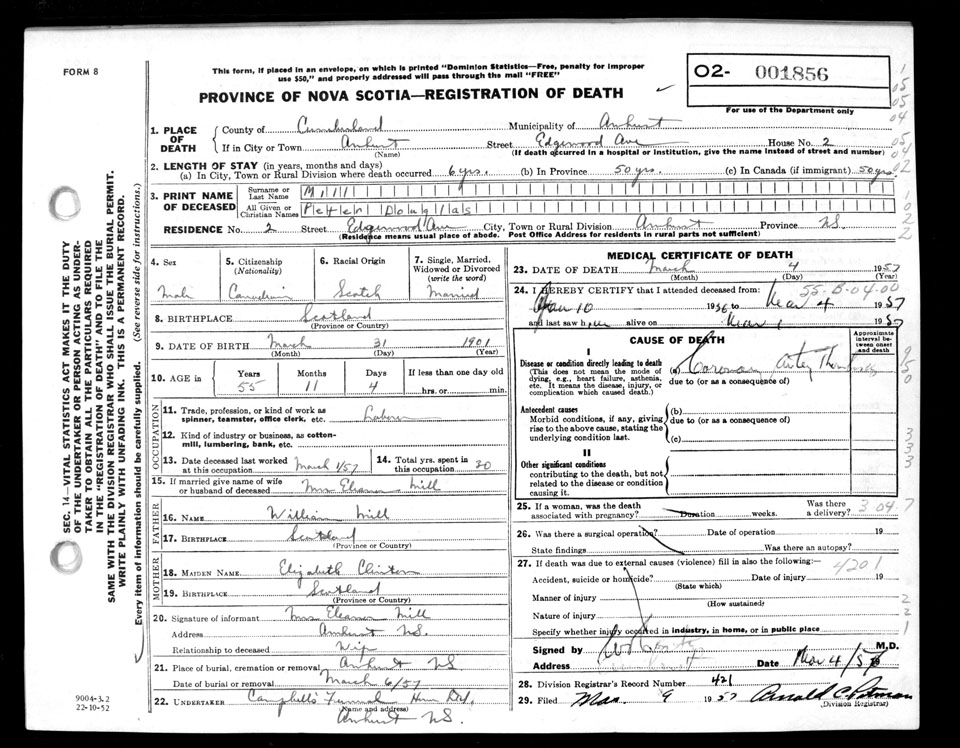 FORM 8
This form, if placed in an envelope, on which is printed "Dominion Statistics—Free, penalty for improper
use $50," and properly addressed will pass through the mail "FREE"
PROVINCE OF NOVA SCOTIA—REGISTRATION OF DEATH
02- 001856
For use of the Department only
1. PLACE OF DEATH County of Cumberland Municipality of Amherst
If in City or Town Amherst Street Edgewood Ave House No. 2
(Name) (If death occurred in a hospital or institution, give the name instead of street and number)
2. LENGTH OF STAY (in years, months and days)
(a) In City, Town or Rural Division where death occurred 6 yrs. (b) In Province 50 yrs. (c) In Canada (if immigrant) 50 yrs.
3. PRINT NAME OF DECEASED Surname or Last Name Mill
All Given or Christian Names Peter Douglas
RESIDENCE No. 2 Street Edgewood Ave City, Town or Rural Division Amherst Province N.S.
(Residence means usual place of abode. Post Office Address for residents in rural parts not sufficient)
4. Sex
Male
5. Citizenship
(Nationality)
Canadian
6. Racial Origin
Scotch
7. Single, Married,
Widowed or Divorced
(write the word)
Married
8. BIRTHPLACE Scotland
(Province or Country)
9. DATE OF BIRTH March 31 1901
(Month) (Day) (Year)
10. AGE in Years Months Days If less than one day old
55 11 4 hrs. or min.
OCCUPATION
11. Trade, profession, or kind of work as
spinner, teamster, office clerk, etc. Laborer
12. Kind of industry or business, as cotton-
mill, lumbering, bank, etc.
13. Date deceased last worked
at this occupation March 1/57
14. Total yrs. spent in
this occupation 30
15. If married give name of wife
or husband of deceased Mrs Eleanor Mill
FATHER
16. NAME William Mill
17. BIRTHPLACE Scotland
(Province or Country)
MOTHER
18. MAIDEN NAME Elizabeth
19. BIRTHPLACE Scotland
(Province or Country)
20. Signature of informant Mrs Eleanor Mill
Address Amherst N.S.
Relationship to deceased Wife
21. Place of burial, cremation or removal Amherst N.S.
Date of burial or removal March 6/57
22. UNDERTAKER Campbell's Funeral Home
(Name and address)
Amherst N.S.
MEDICAL CERTIFICATE OF DEATH
23. DATE OF DEATH March 4 1957
(Month) (Day) (Year)
55-B-04-00
24. I HEREBY CERTIFY that I attended deceased from:
Jan 10 1956 to Mar 4 1957
and last saw him alive on Mar 1 1957
CAUSE OF DEATH
Approximate
interval be-
tween onset
and death
I
Disease or condition directly leading to death
(This does not mean the mode of
dying, e.g., heart failure, asthenia,
etc. It means the disease, injury, or
complication which caused death.)
(a) Coronary Artery Thrombosis
due to (or as a consequence of)
Antecedent causes
Morbid conditions, if any, giving
rise to the above cause, stating the
underlying condition last.
(b)
due to (or as a consequence of)
(c)
II
Other significant conditions
contributing to the death, but not
related to the disease or condition
causing it.
25. If a woman, was the death
associated with pregnancy? Duration weeks. Was there
a delivery?
304
26. Was there a surgical operation? Date of operation 19
State findings Was there an autopsy?
27. If death was due to external causes (violence) fill in also the following:—
4201
Accident, suicide or homicide? Date of injury 19
(State which)
Manner of injury
(How sustained)
Nature of injury
Specify whether injury occurred in industry, in home, or in public place
Signed by M.D.
Address Date Mar 4/57 19
28. Division Registrar's Record Number 421
29. Filed Mar 9 1957 Arnold C
(Division Registrar)
SEC. 14—VITAL STATISTICS ACT MAKES IT THE DUTY
OF THE UNDERTAKER OR PERSON ACTING AS UNDER-
TAKER TO OBTAIN ALL THE PARTICULARS REQUIRED
IN THE "REGISTRATION OF DEATH" AND TO FILE THE
SAME WITH THE DIVISION REGISTRAR WHO SHALL ISSUE THE BURIAL PERMIT.
WRITE PLAINLY WITH UNFADING INK. THIS IS A PERMANENT RECORD.
Every item of information should be carefully supplied. (See reverse side for instructions.)
9004-3.2
22-10-52